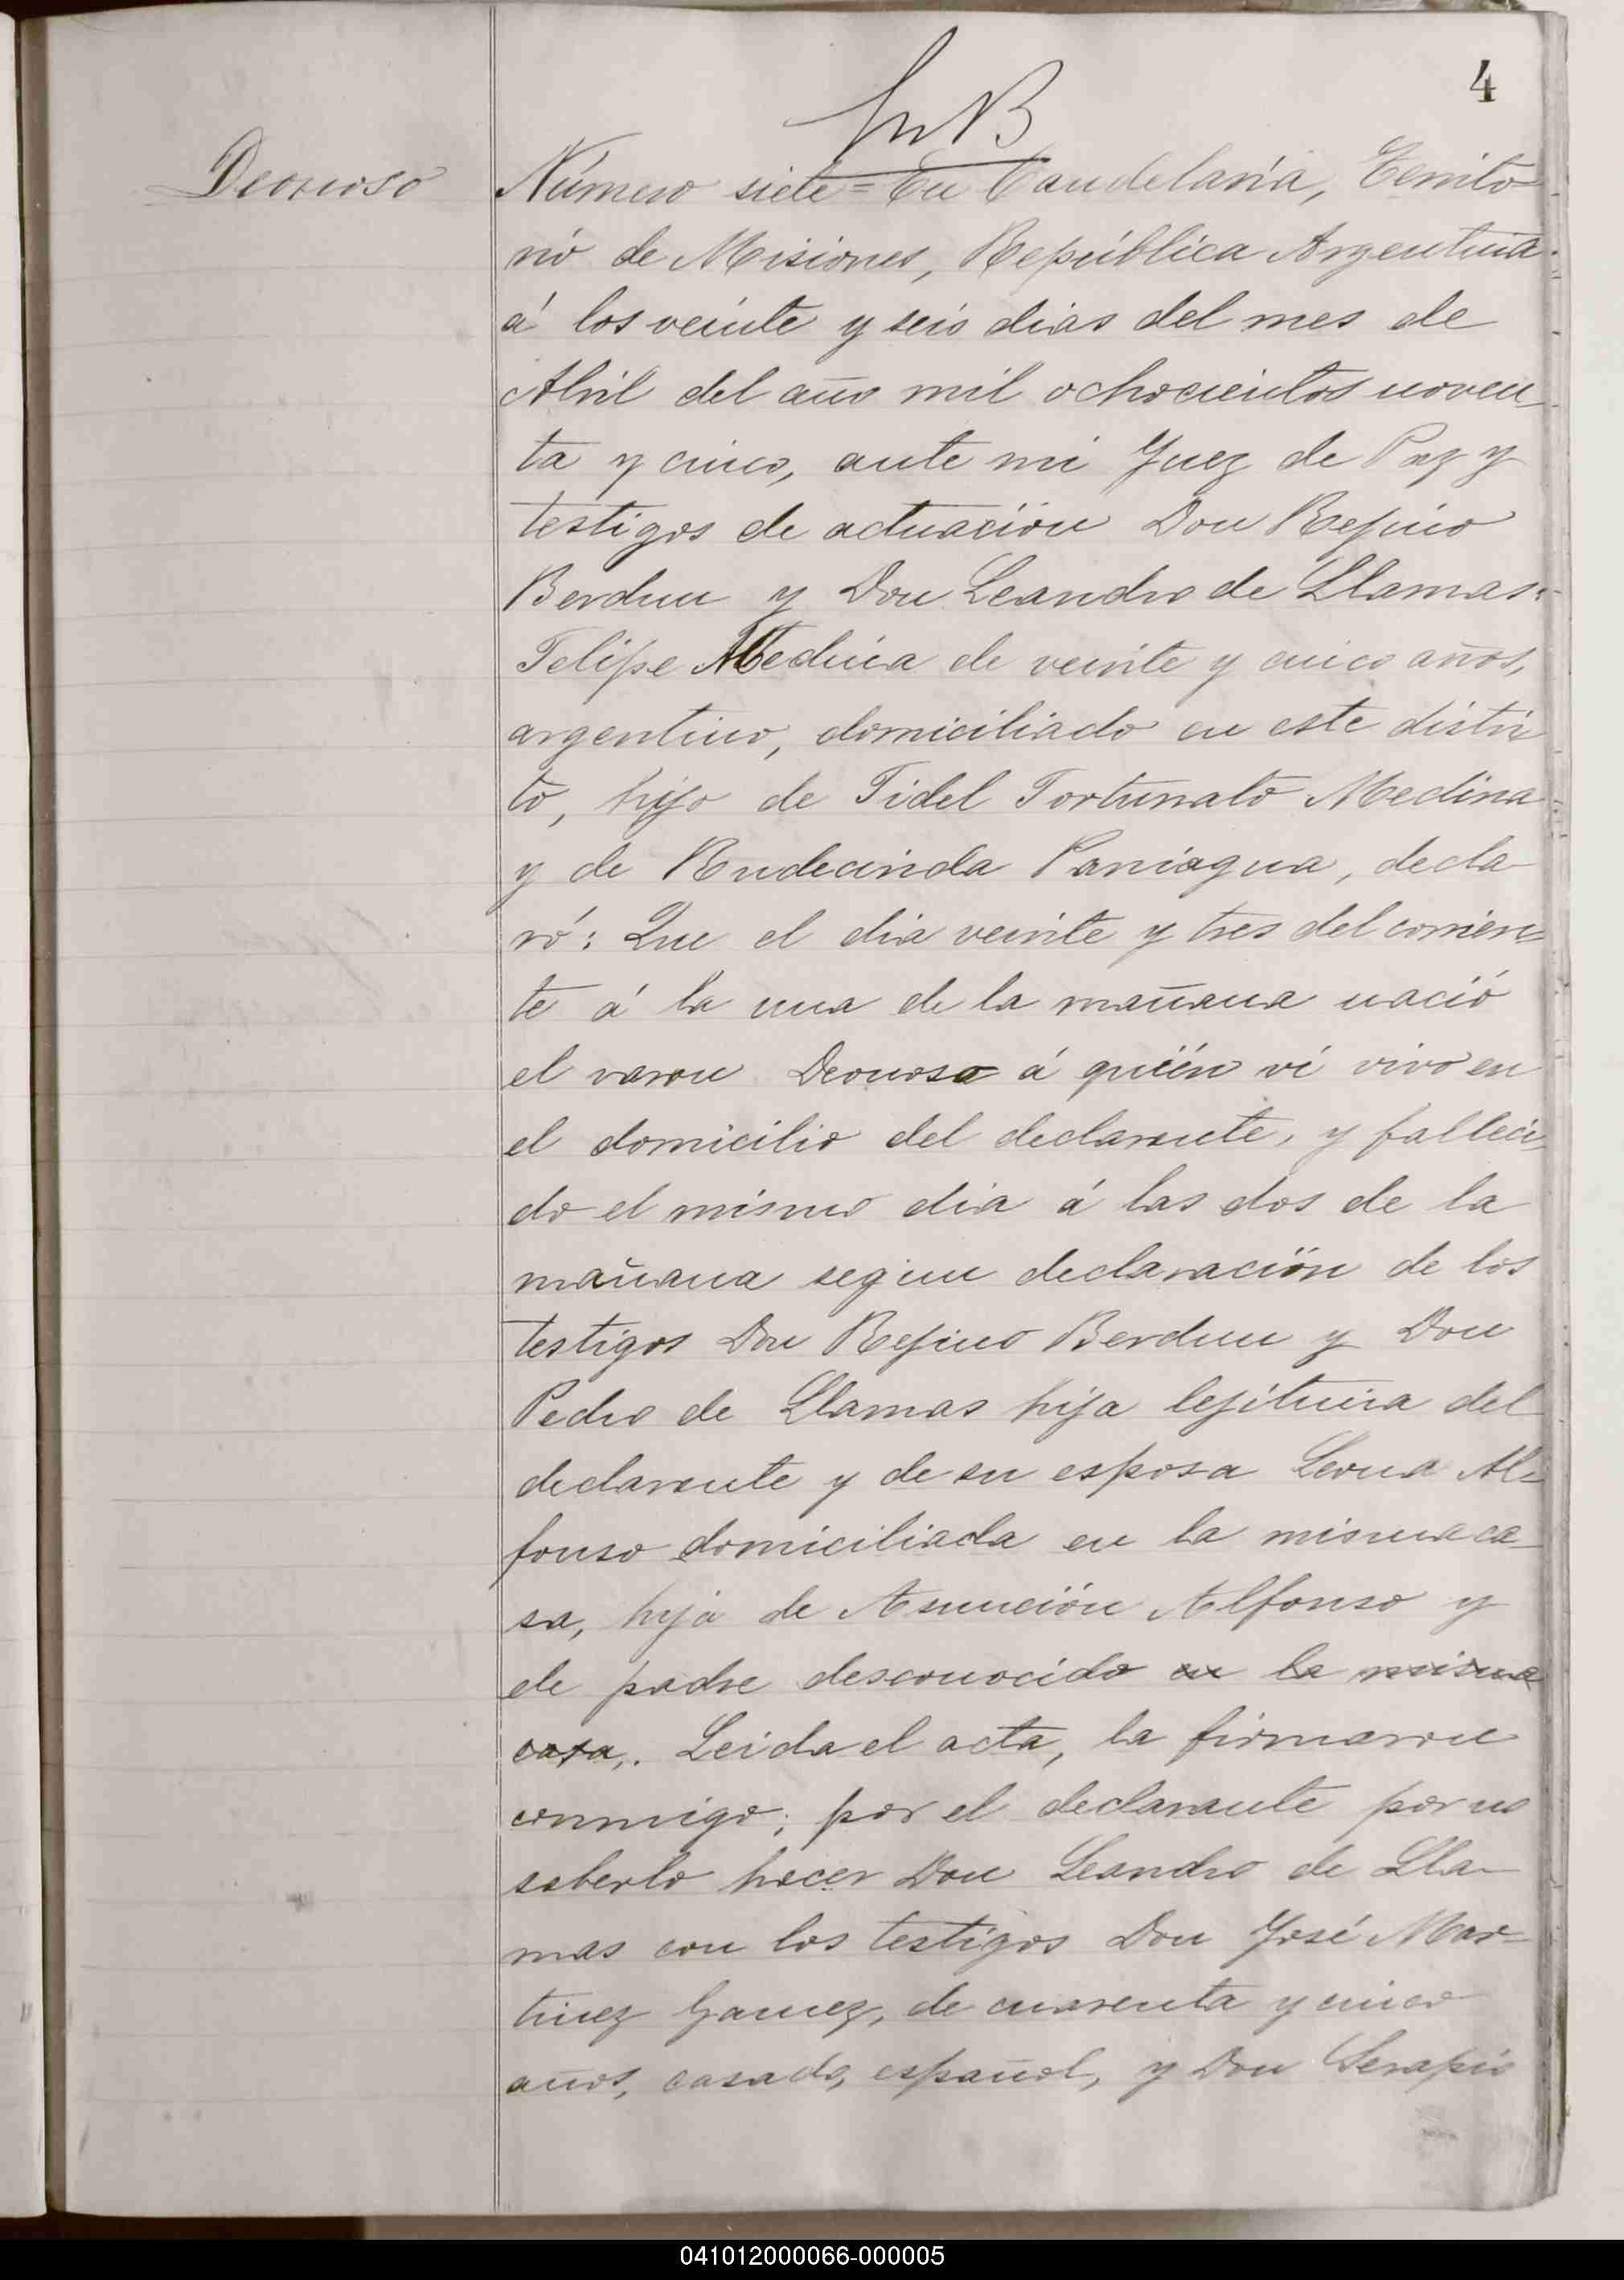 4
Deonoso
Número siete = En Candelaria, Territo-
rio de Misiones, República Argentina
á los veinte y seis dias del mes de
Abril del año mil ochocientos noven-
ta y cinco, ante mi Juez de Paz y
testigos de actuación Don Refino
Berdun y Don Leandro de Llamas
Felipe Medina de veinte y cinco años,
argentino, domiciliado en este distri
to, hijo de Fidel Fortunato Medina
y de Rudecinda Paniagua, decla
ró: Que el dia veinte y tres del corrien-
te á la una de la mañana nació
el varon Deonoso á quién ví vivo en
el domicilio del declarante, y falleci-
do el mismo dia á las dos de la
mañana segun declaración de los
testigos Don Refino Berdun y Don
Pedro de Llamas hija lejitima del
declarante y de su esposa Leona Al-
fonso domiciliada en la misma ca-
sa, hija de Asunción Alfonso y
de padre desconocido en la misma
casa,. Leida el acta, la firmaron
conmigo; por el declarante por no
saberlo hacer Don Leandro de Lla-
mas con los testigos Don José Mar-
tinez Gamez, de cuarenta y cinco
años, casado, español, y Don Serapio
041012000066-000005